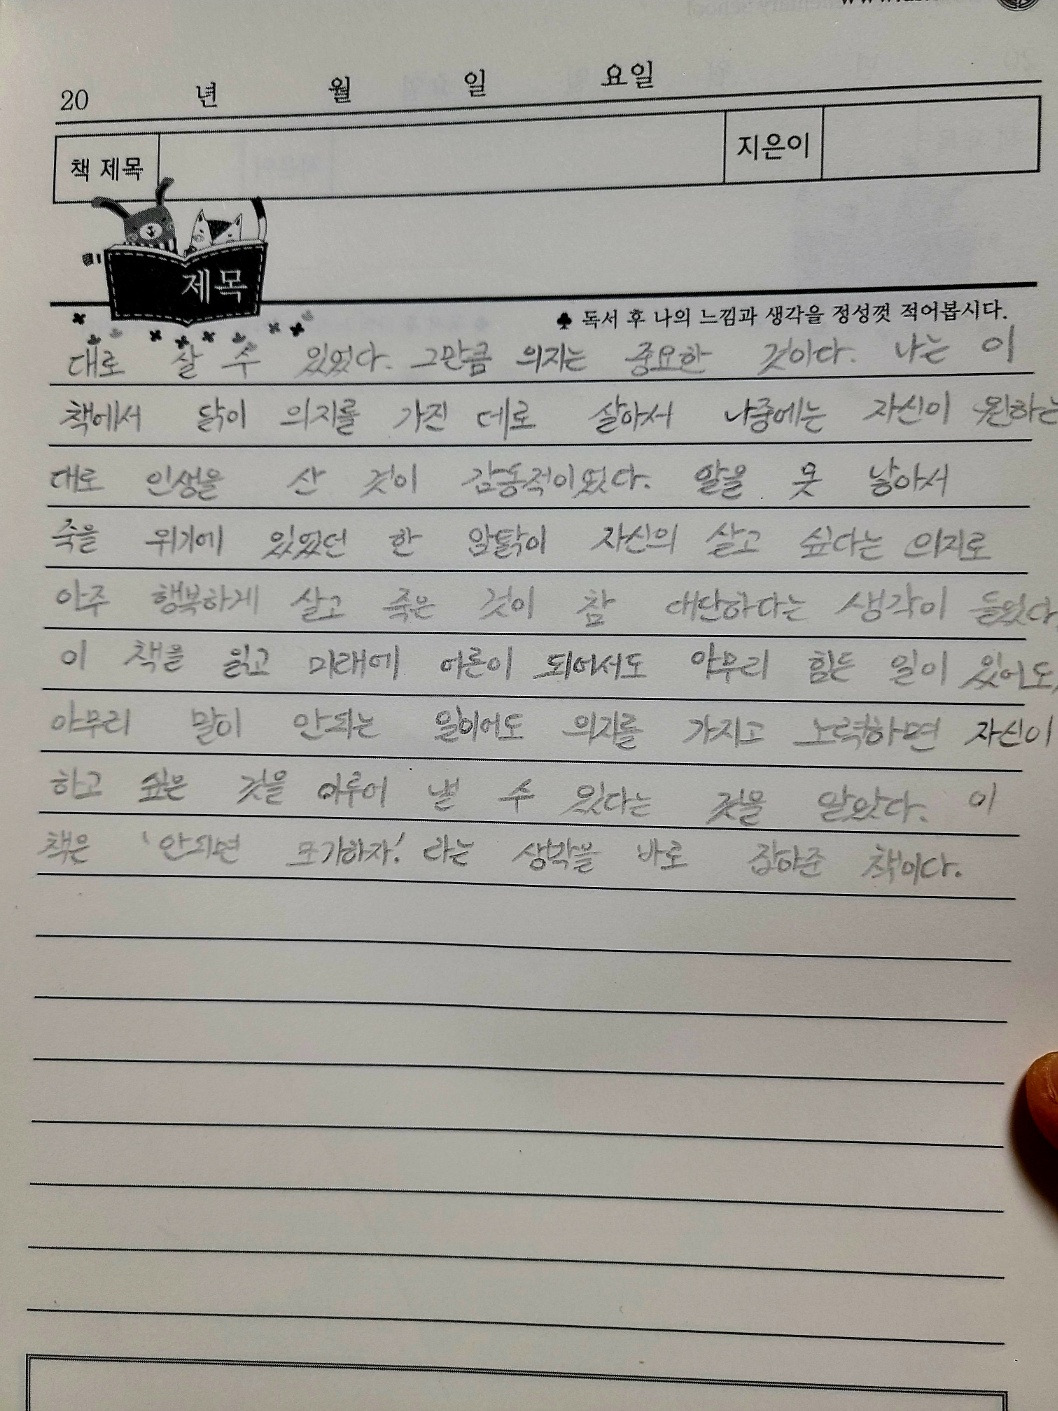 20 년 월 일 요일
책 제목 지은이
제목
♠ 독서 후 나의 느낌과 생각을 정성껏 적어봅시다.
대로 살 수 있었다. 그만큼 의지는 중요한 것이다. 나는 이
책에서 닭이 의지를 가진 데로 살아서 나중에는 자신이 원하는
대로 인생을 산 것이 감동적이었다. 알을 못 낳아서
죽을 위기에 있었던 한 암탉이 자신의 살고 싶다는 의지로
아주 행복하게 살고 죽은 것이 참 대단하다는 생각이 들었다.
이 책을 읽고 미래에 어른이 되어서도 아무리 힘든 일이 있어도,
아무리 말이 안되는 일이어도 의지를 가지고 노력하면 자신이
하고 싶은 것을 이루어 낼 수 있다는 것을 알았다. 이
책은 '안되면 포기하자!' 라는 생각을 바로 잡아준 책이다.